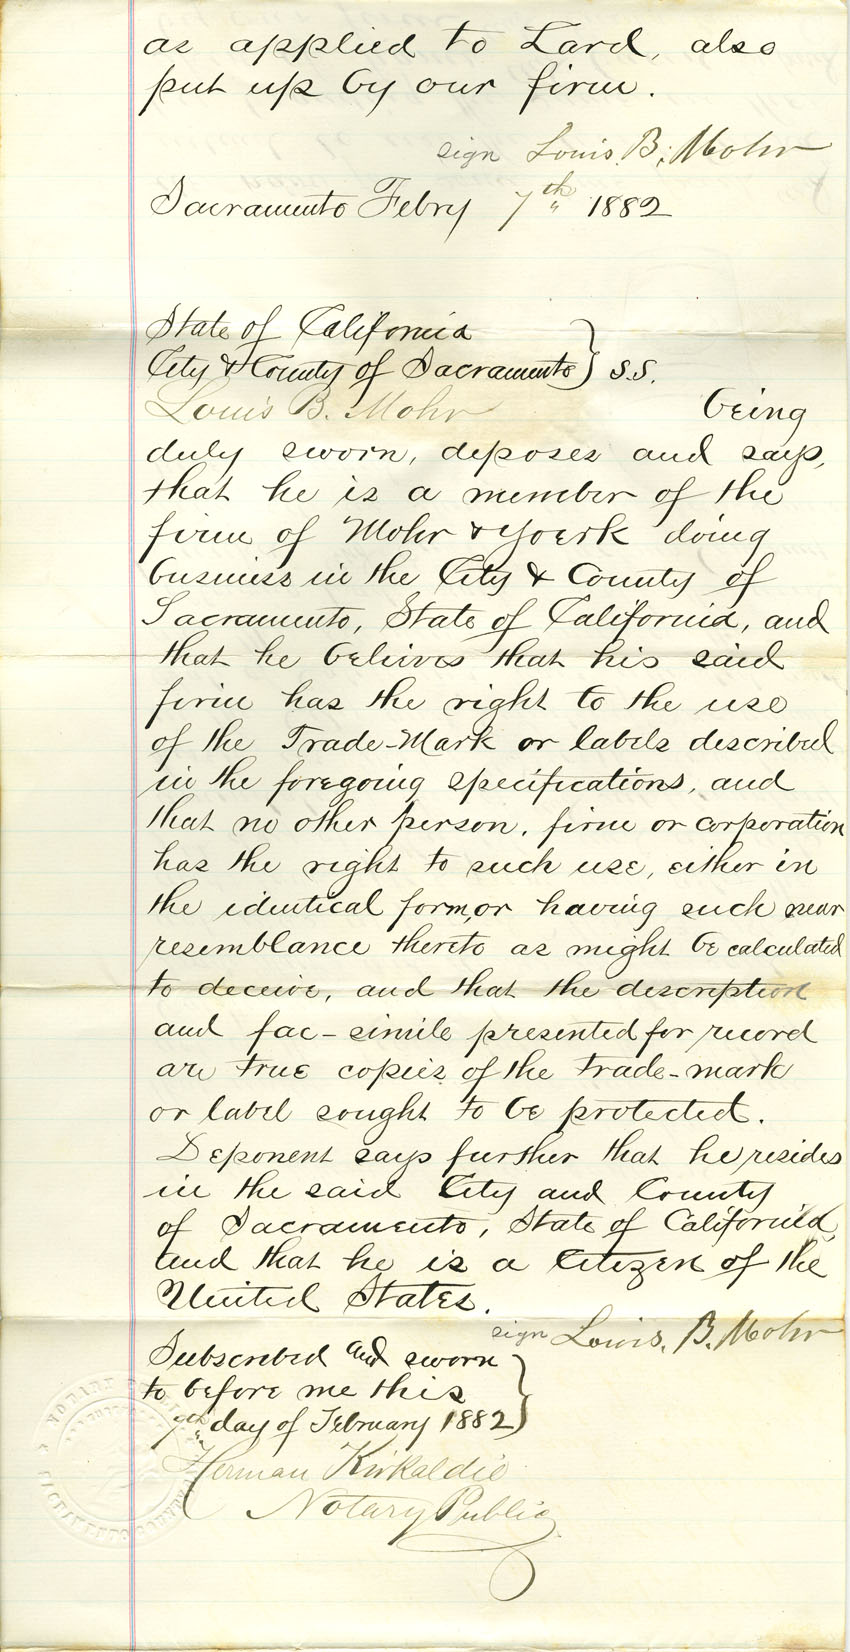 as applied to Lard, also
put up by our firm.
sign Louis. B. Mohr
Sacramento Febry 7th 1882
State of California
City & County of Sacramento } S.S.
Louis B. Mohr being
duly sworn, deposes and says,
that he is a member of the
firm of Mohr & Yoerk doing
business in the City & County of
Sacramento, State of California, and
that he believes that his said
firm has the right to the use
of the Trade-Mark or labels described
in the foregoing specifications, and
that no other person, firm or corporation
has the right to such use, either in
the identical form, or having such near
resemblance thereto as might be calculated
to deceive, and that the description
and fac-simile presented for record
are true copies of the trade-mark
or label sought to be protected.
Deponent says further that he resides
in the said City and County
of Sacramento, State of California,
and that he is a Citizen of the
United States.
sign Louis. B. Mohr
Subscribed and sworn
to before me this
7th day of February 1882 }
Herman Kirkaldie
Notary Public